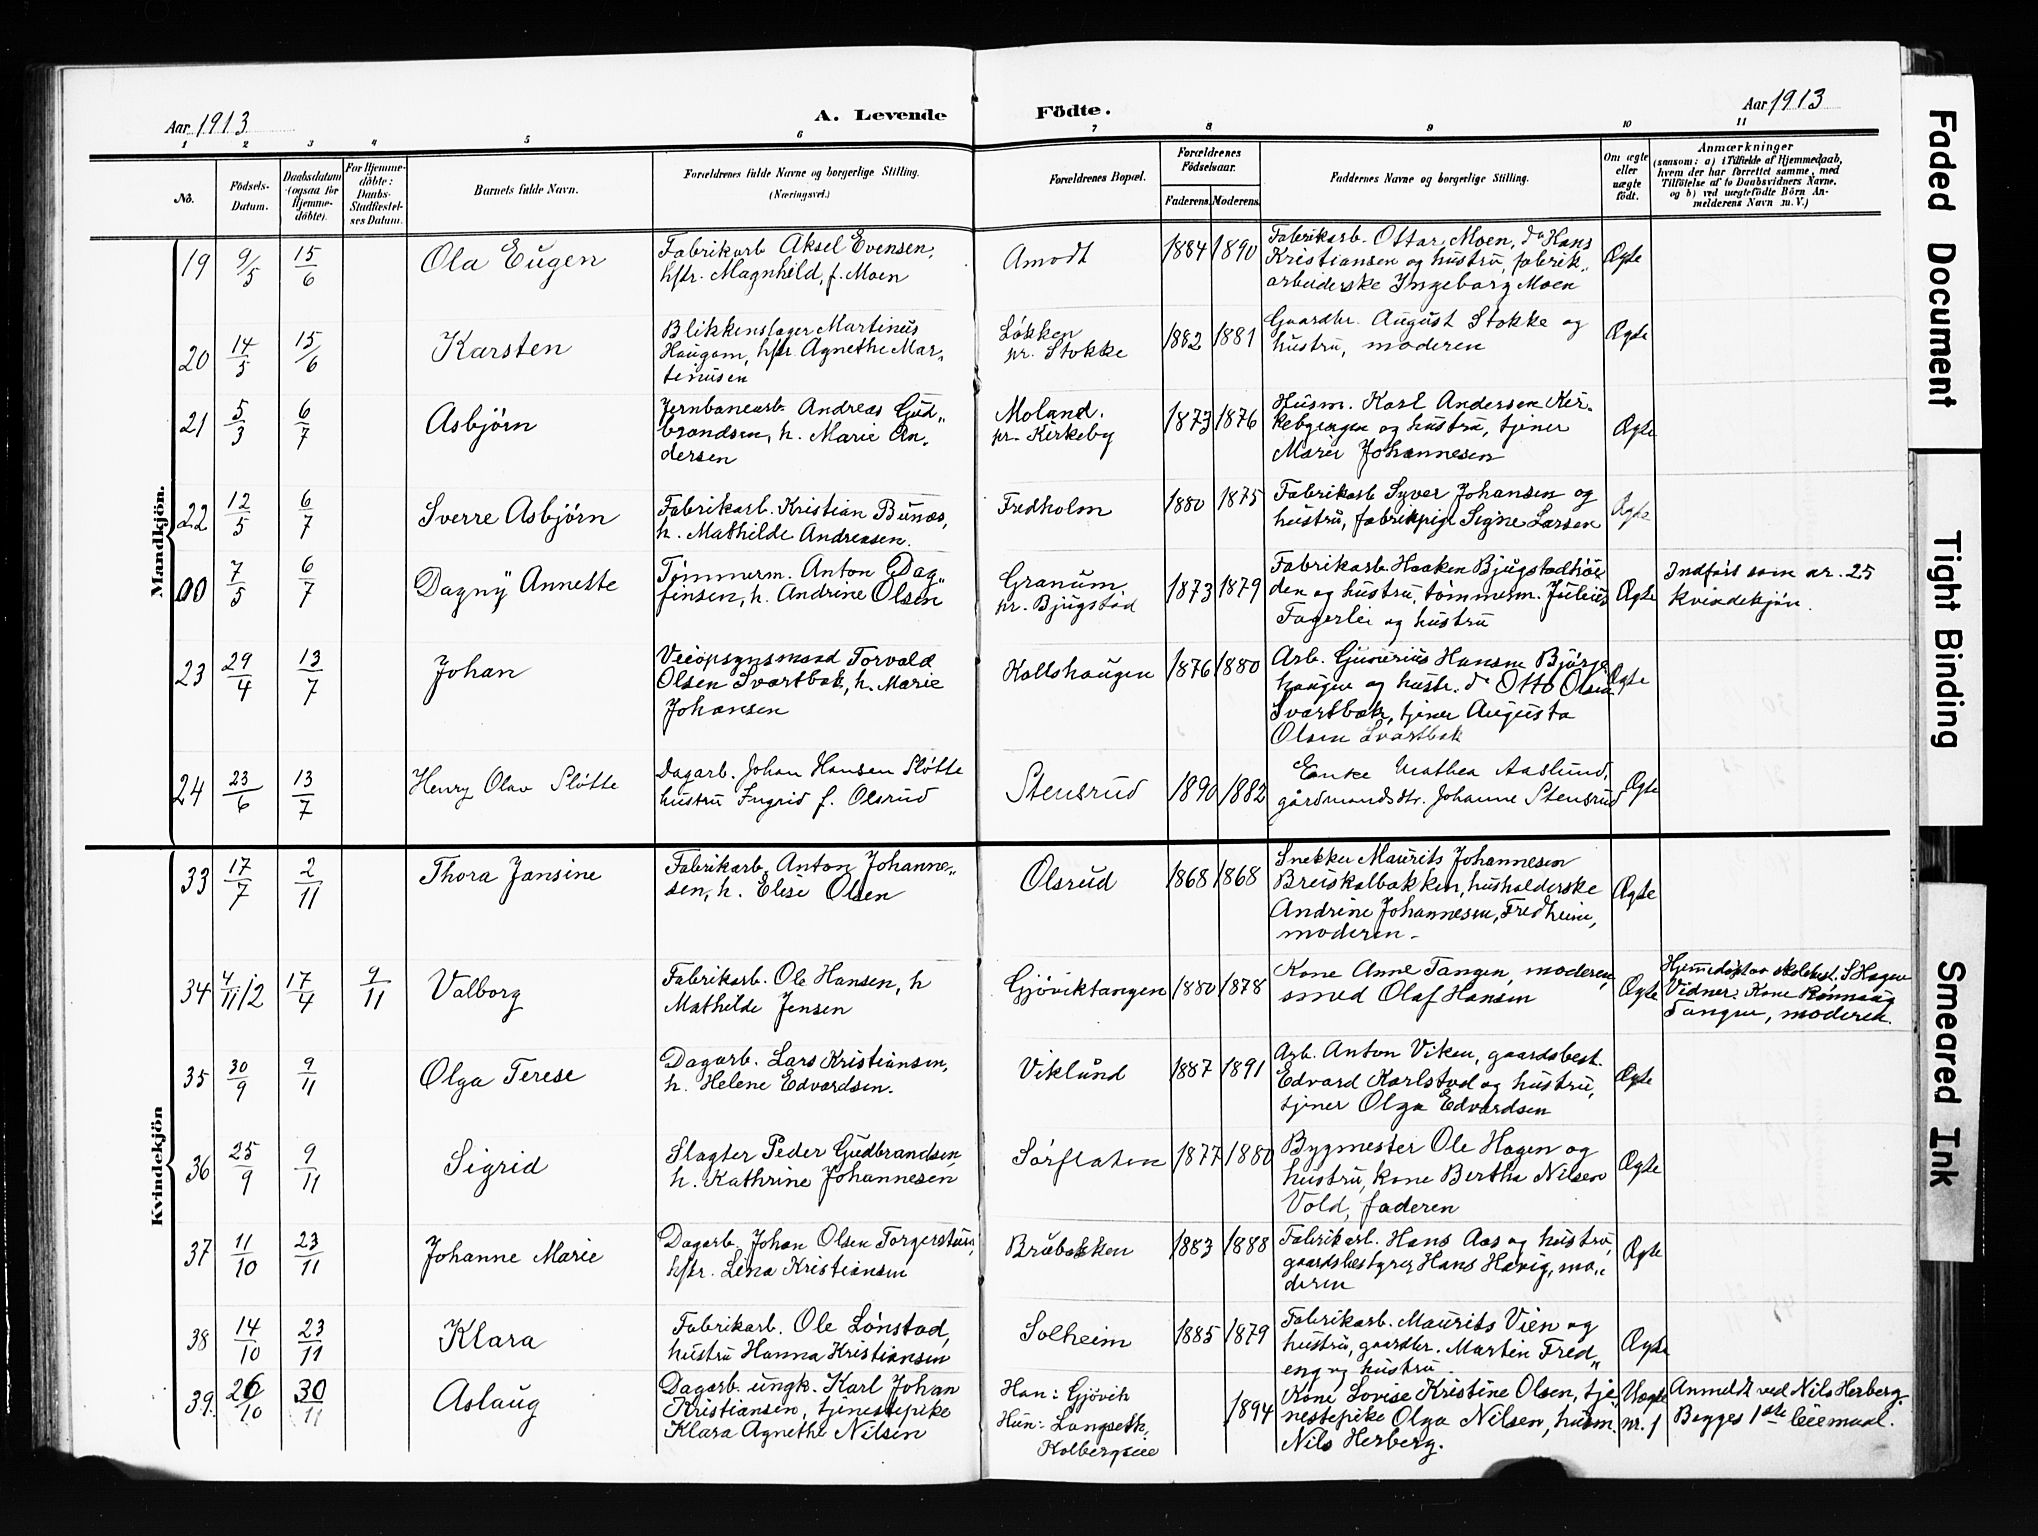 Aar 1913
A. Levende
Födte.
Aar 1913
1 2 3 4 5 6 7 8 9 10 11
No.
Födsels-Datum.
Daabsdatum (ogsaa for Hjemme-döbte).
For Hjemme-döbte: Daabs-Stadfæstel-ses Datum.
Barnets fulde Navn.
Forældrenes fulde Navne og borgerlige Stilling.
(Næringsvei.)
Forældrenes Bopæl.
Forældrenes Födselsaar.
Faderens. Moderens.
Faddernes Navne og borgerlige Stilling.
Om ægte eller uægte födt.
Anmærkninger
(saasom: a) i Tilfælde af Hjemmedaab,
hvem der har forrettet samme, med
Tilföielse af to Daabsvidners Navne,
og b) ved uægtefödte Börn An-
melderens Navn m. V.)
Mandkjön.
19 9/5 15/6 Ola Eugen
Fabrikarb Aksel Evensen,
hstr. Magnhild, f. Moen
Amodt 1884 1890
Fabrikarb. Ottar Moen, do Hans
Kristiansen og hustru, fabrik„
arbeiderske Ingeborg Moen
Ægte
20 14/5 15/6 Karsten
Blikkenslager Martinus
Haugom, hstr. Agnethe Mar„
tinusen
Løkken
pr. Stokke
1882 1881
Gaardbr. August Stokke og
hustru, moderen
Ægte
21 5/3 6/7 Asbjørn
Jernbanearb. Andreas Gud„
brandsen, h. Marie An„
dersen
Moland.
pr. Kirkeby
1873 1876
Husm. Karl Andersen Kir„
kebyengen og hustru, tjener
Marie Johannesen
Ægte
22 12/5 6/7 Sverre Asbjørn
Fabrikarb. Kristian Bunæs,
h. Mathilde Andreasen.
Fredholm 1880 1875
Fabrikarb Syver Johansen og
hustru, fabrikpige Signe Larsen
Ægte
00 7/5 6/7 Dagny Annette
Tømmerm. Anton Dag„
finsen, h. Andrine Olsen
Granum
pr. Bjugstad
1873 1879
Fabrikarb. Haaken Bjugstadhøi
den og hustru, tømmerm. Julius
Fagerlei og hustru
Ægte
Indført som nr. 25
Kvindekjøn.
23 29/4 13/7 Johan
Veiopsynsmand Torvald
Olsen Svartbak, h. Marie
Johansen
Kollshaugen 1876 1880
Arb. Gunerius Hansen Bjørge
haugen og hustr. do Otto Olsen
Svartbak, tjener Augusta
Olsen Svartbak
Ægte
24 23/6 13/7 Henry Olav Sløtte
Dagarb. Johan Hansen Sløtte
hustru Ingrid f. Olsrud
Stensrud 1890 1882
Enke Mathea Aaslund,
gårdmandsdtr. Johanne Stensrud
Ægte
Kvindekjön
33 17/7 2/11 Thora Jansine
Fabrikarb. Anton Johanne„
sen, h. Elise Olsen
Olsrud 1868 1868
Snekker Maurits Johannesen
Breiskalbakken, husholderske
Andrine Johannesen, Fredheim,
moderen.
Ægte
34 4/11 12 17/4 9/11 Valborg
Fabrikarb. Ole Hansen, h
Mathilde Jensen
Gjøviktangen 1880 1878
Kone Anne Tangen, moderen,
smed Olaf Hansen
Ægte
Hjemedøpt av skolebest. S Hagen
Vidner: Kone Rønnaug
Tangen, moderen.
35 30/9 9/11 Olga Terese
Dagarb. Lars Kristiansen,
h. Helene Edvardsen.
Viklund 1887 1891
Arb. Anton Viken, gaardsbest.
Edvard Karlstad og hustru,
tjener Olga Edvardsen
Ægte
36 25/9 9/11 Sigrid
Slagter Peder Gudbrandsen,
h. Kathrine Johannesen
Sørflaten 1877 1880
Bygmester Ole Hagen og
hustru, kone Bertha Nilsen
Vold, faderen
Ægte
37 11/10 23/11 Johanne Marie
Dagarb. Johan Olsen Torgerstuen,
hstr. Lena Kristiansen
Brubakken 1883 1888
Fabrikarb. Hans Aas og hustru,
gaardsbestyrer Hans Høvig, mo„
deren
Ægte
38 14/10 23/11 Klara
Fabrikarb. Ole Lønstad,
hustru Hanna Kristiansen
Solheim 1885 1879
Fabrikarb. Maurits Vien og
hustru, gaardbr. Martin Fred„
eng og hustru
Ægte
39. 26/10 30/11 Aslaug
Dagarb. ungk. Karl Johan
Kristiansen, tjenestepike
Klara Agnethe Nilsen
Han: Gjøvik
Hun: Langseth,
Kolbergseie
1894
Kone Lovise Kristine Olsen, tje
nestepike Olga Nilsen, husm.
Nils Herberg.
Uægte
nr. 1
Anmeldt ved Nils Herberg.
Begges 1ste leiemaal.
Faded Document
Tight Binding
Smeared Ink